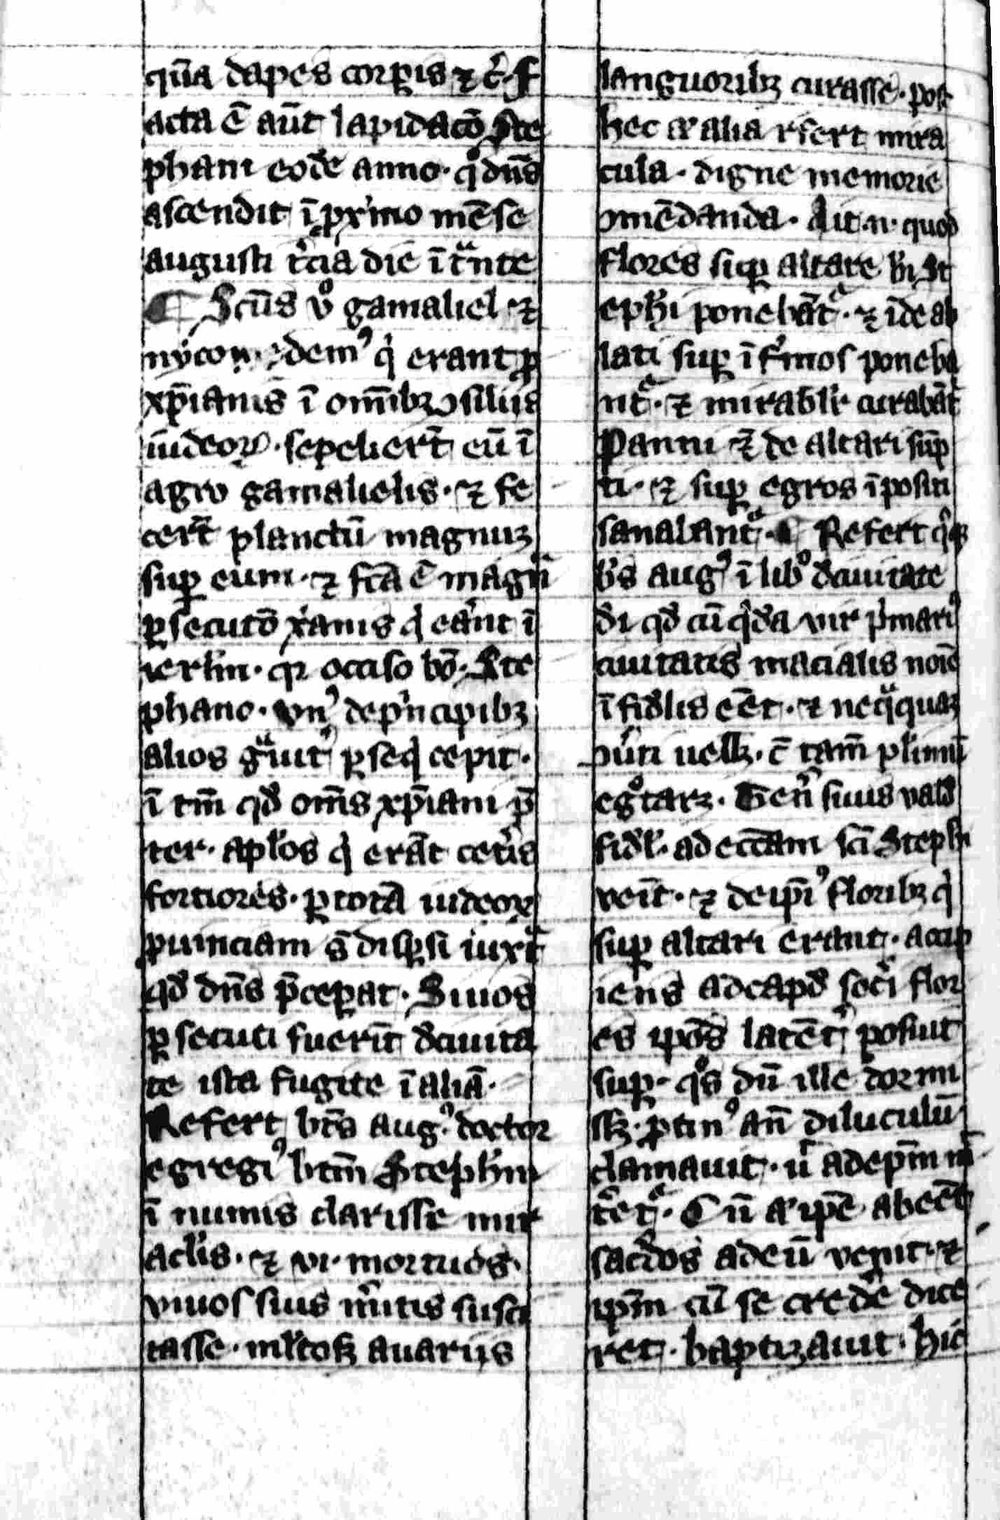 qua᷑ dapes corꝑis ⁊ c̉. F
acta ē aūt lapidacō Ste
phani eodē anno · qͦ dn̄s
ascendit ī ꝓxͥmo mēse
augusti t̉cia die ītͣnte
¶ Scūs vͦ gamaliel ⁊
nycon · ⁊demꝰ qͥ erant ꝓ
xp̄ianis ī om̄ibꝫ ↄsiliis
iudeoꝝ · sepelier̄t eū ī
agro gamalielis · ⁊ fe
cer̄t planctū magnuꝫ
suꝑ eum · ⁊ fc̄a ē magͣ
ꝑsecutō xͥanis qͥ eānt ī
ierl̄m · qꝛ occiso bō · Ste
phano · vnꝰ de pͥncipibꝫ
alios gͣuit᷑ ꝑseqͥ cepit ·
ī tm̄ qd̄ om̄s xp̄iani p̄
ter · apl̄os qͥ erāt cet̉is
fortiores · ꝑ totā iudeoꝝ
ꝓuinciam gͣ disꝑsi iuxtͣ
qd̄ dn̄s p̄ceꝑat · Si uos
ꝑsecuti fuerīt d̄ ciuita
te ista fugite ī aliā ·
Refert btūs augꝰ doctor
egregiꝰ btm̄ Stephm̄
ī numis clarisse mir
acl̄is · ⁊ vi · mortuos
viuos suis m̄itis susci
tasse · ml̄tosꝫ auariis
languoribꝫ curasse · post
hec ⁊ alia rēfert mira
cula · digne memorie
ↄmēdanda · Ait · n · quod
flores suꝑ altare bī St
ephi ponebāt᷑ · ⁊ īde ab
lati suꝑ īfͥmos poneba
nt᷑ · ⁊ mirabilr̄ curabāt᷑
Panni ⁊ de altari sūp
ti · ⁊ suꝑ egros īpositi
sanabant᷑ · ¶ Refert qͦqꝫ
b̄s augꝰ ī libͦ d̄ ciuitate
dī qd̄ cū qͥdā vir pͥmariꝰ
ciuitatis macialis noīe
īfidlis eēt · ⁊ neqͣquaꝫ
ↄu̓ti uellꝫ · ē tam̄ plimū
egͦtarꝫ · Gen̉ suus vald̄
fidl̄ · ad eccām sc̄i Steph̄i
venīt · ⁊ de ip̄iꝰ floribꝫ qͥ
suꝑ altari erant · accip
iens ad capd̄ soc̉i flor
es ip̄os latēt᷑ posuit
suꝑ · qͦs dū ille dormi
sꝫ · ꝓtinꝰ an̄ diluculū
clamauit · ut ad ep̄m mͥ
t̉et᷑ · Cū āt ip̄e abeēt
sacd̄os ad eū venit · ⁊
ip̄m cū se creder̄e dice
ret · baptizauit · hic